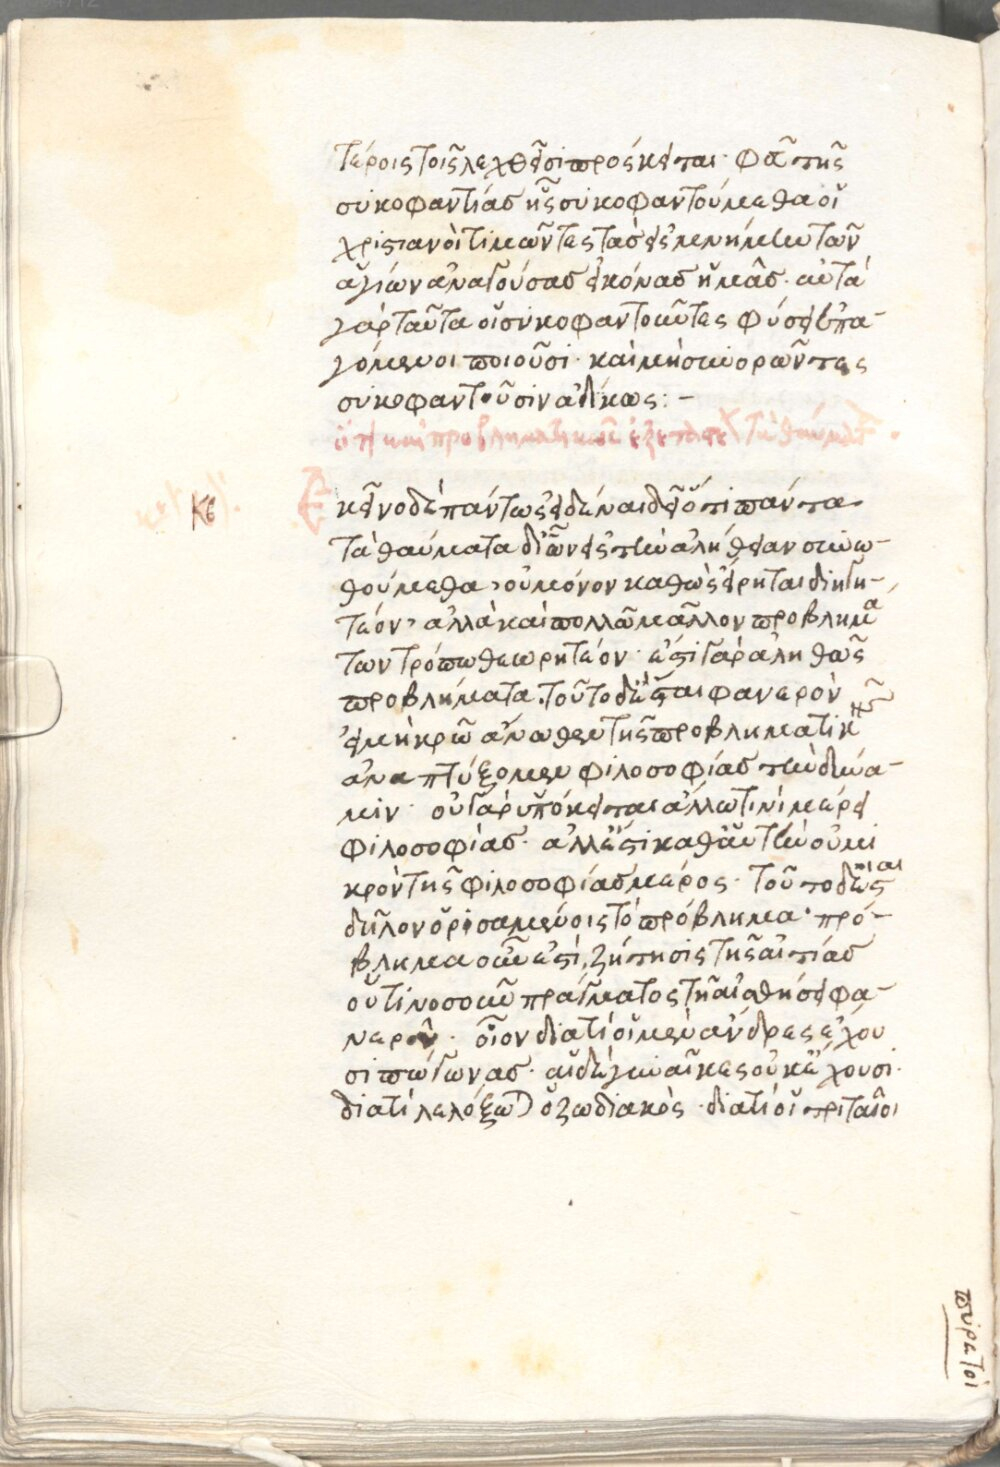 τέροις τοῖς λεχθεῖσι πρόσκειται· φᾶ τῆς
συκοφαντίασ ἧς συκοφαντούμεθα οἱ
χριστιανοὶ τιμῶντες τὰσ εἰς μνήμην τῶν
ἁγίων ἀναγούσασ εἰκόνασ ἡμᾶσ· αὐτὰ
γὰρ ταῦτα οἱ συκοφαντοῦντες φύσει ἐπα-
γόμενοι ποιοῦσι· καὶ μὴ συνορῶντες
συκοφαντοῦσιν ἀδίκως:-
ὅτι καὶ προβληματικῶς τὰ θαύματα
κε Ἐκεῖνο δὲ πάντως εἰδέναι δεῖ ὅτι πάντα
τὰ θαύματα δι' ὧν εἰς τὴν ἀλήθειαν συνω-
θούμεθα, οὐ μόνον καθὼς εἴρηται διηγη-
τέον, ἀλλὰ καὶ πολλῶ μᾶλλον προβλημά
των τρόπω θεωρητέον· εἰσὶ γὰρ ἀληθῶς
προβλήματα. τοῦτο δ' ἔσται φανερὸν
εἰ μικρῶ ἄνωθεν τῆς προβληματικῆς
ἀναπτύξομεν φιλοσοφίασ τὴν δύνα-
μιν· οὐ γὰρ ὑπόκειται ἄλλω τινὶ μέρει
φιλοσοφίασ· ἀλλ' ἔστι καθ' αὑτὴν οὐ μι
κρὸν τῆς φιλοσοφίασ μέρος· τοῦτο δ' ἔσται
δῆλον ὁρισαμένοις τὸ πρόβλημα· πρό-
βλημα οὖν ἐστὶ, ζήτησις τῆς αἰτίασ
οὗτινοσοῦν πράγματος τῇ αἰσθήσει φα-
νεροῦ· οἷον διατί οἱ μὲν ἄνδρες ἔχου
σι πώγωνασ· αἱ δὲ γυναῖκες οὐκ ἔχουσι·
διατί λελόξωται ὁ ζωδιακός· διατί οἱ τριταῖοι
πυρετοὶ